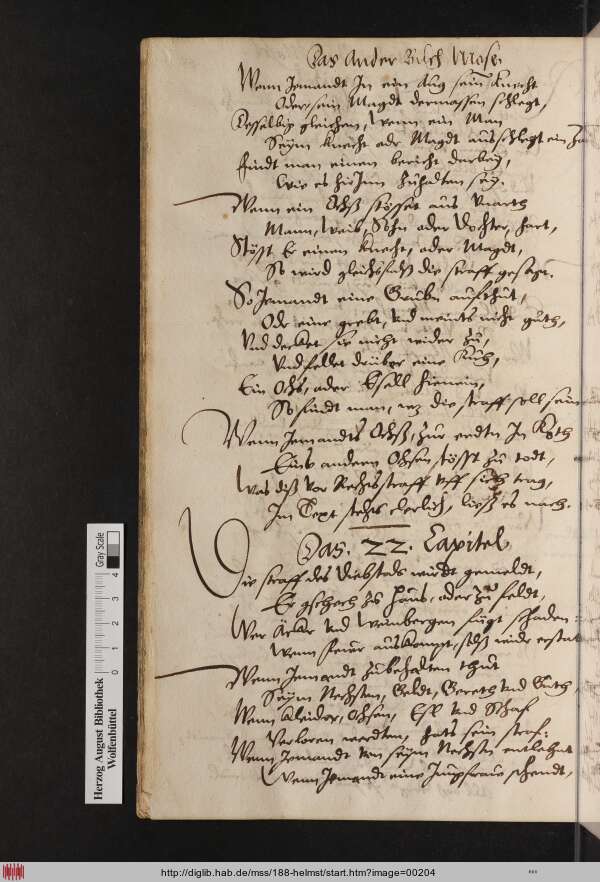 Das Ander Buch Mose.
Wenn Jemandt In ein Aug sein Knecht
Oder sein Magdt dermassen schlegt,
Desselbig gleichen, Wenn ein Man
Seym Knecht odr Magdt ausschlegt ein Zan
findt man einen bericht darbey,
Wie es hirInn Zuhalten sey.
Wenn ein Ochß stösset aus Unarth
Mann, Weib, Sohn oder Dochter, hart,
Stösst Er einen Knecht, oder Magdt,
So wird gleichsfalß die straff gesagt.
So Jemandt eine Gruben aufthut,
Odr eine grebt, Und meints nicht guth,
Und decket sie nicht wider Zu,
Und fellet drüber eine Kuh,
Ein Ochs, oder Esell hienein,
So findt man, wz die straff soll sein
Wenn Jemandts Ochß, Zur erdtn In Koth
Eins andern Ochsen stösst Zu todt,
Was diß vor Rechtsstraff uff sich trag,
Im Text stehts clerlich, liess es nach.
Das. 22. Capitel.
Die straff des Diebstals würdt gemeldt,
Er gscheh Zu Hauß, oder Zu feldt,
Wer Äckr Und Weinbergen fügt schaden:
Wenn feuer auskompt, solß wider erstat
Wenn Jemandt Zubehalten thut
Seym Nechsten, Geldt, Gereth Und Guth,
Wenn kleider, Ochsen, Esl Und Schaf
Verloren werdten, hats sein straf:
Wenn Jemandt von seym Nechstn entlehnt
Wenn Jemandt eine Jungfraw schendt,
Herzog August Bibliothek
Wolfenbüttel
Gray Scale
0 1 2 3 4
http://diglib.hab.de/mss/188-helmst/start.htm?image=00204